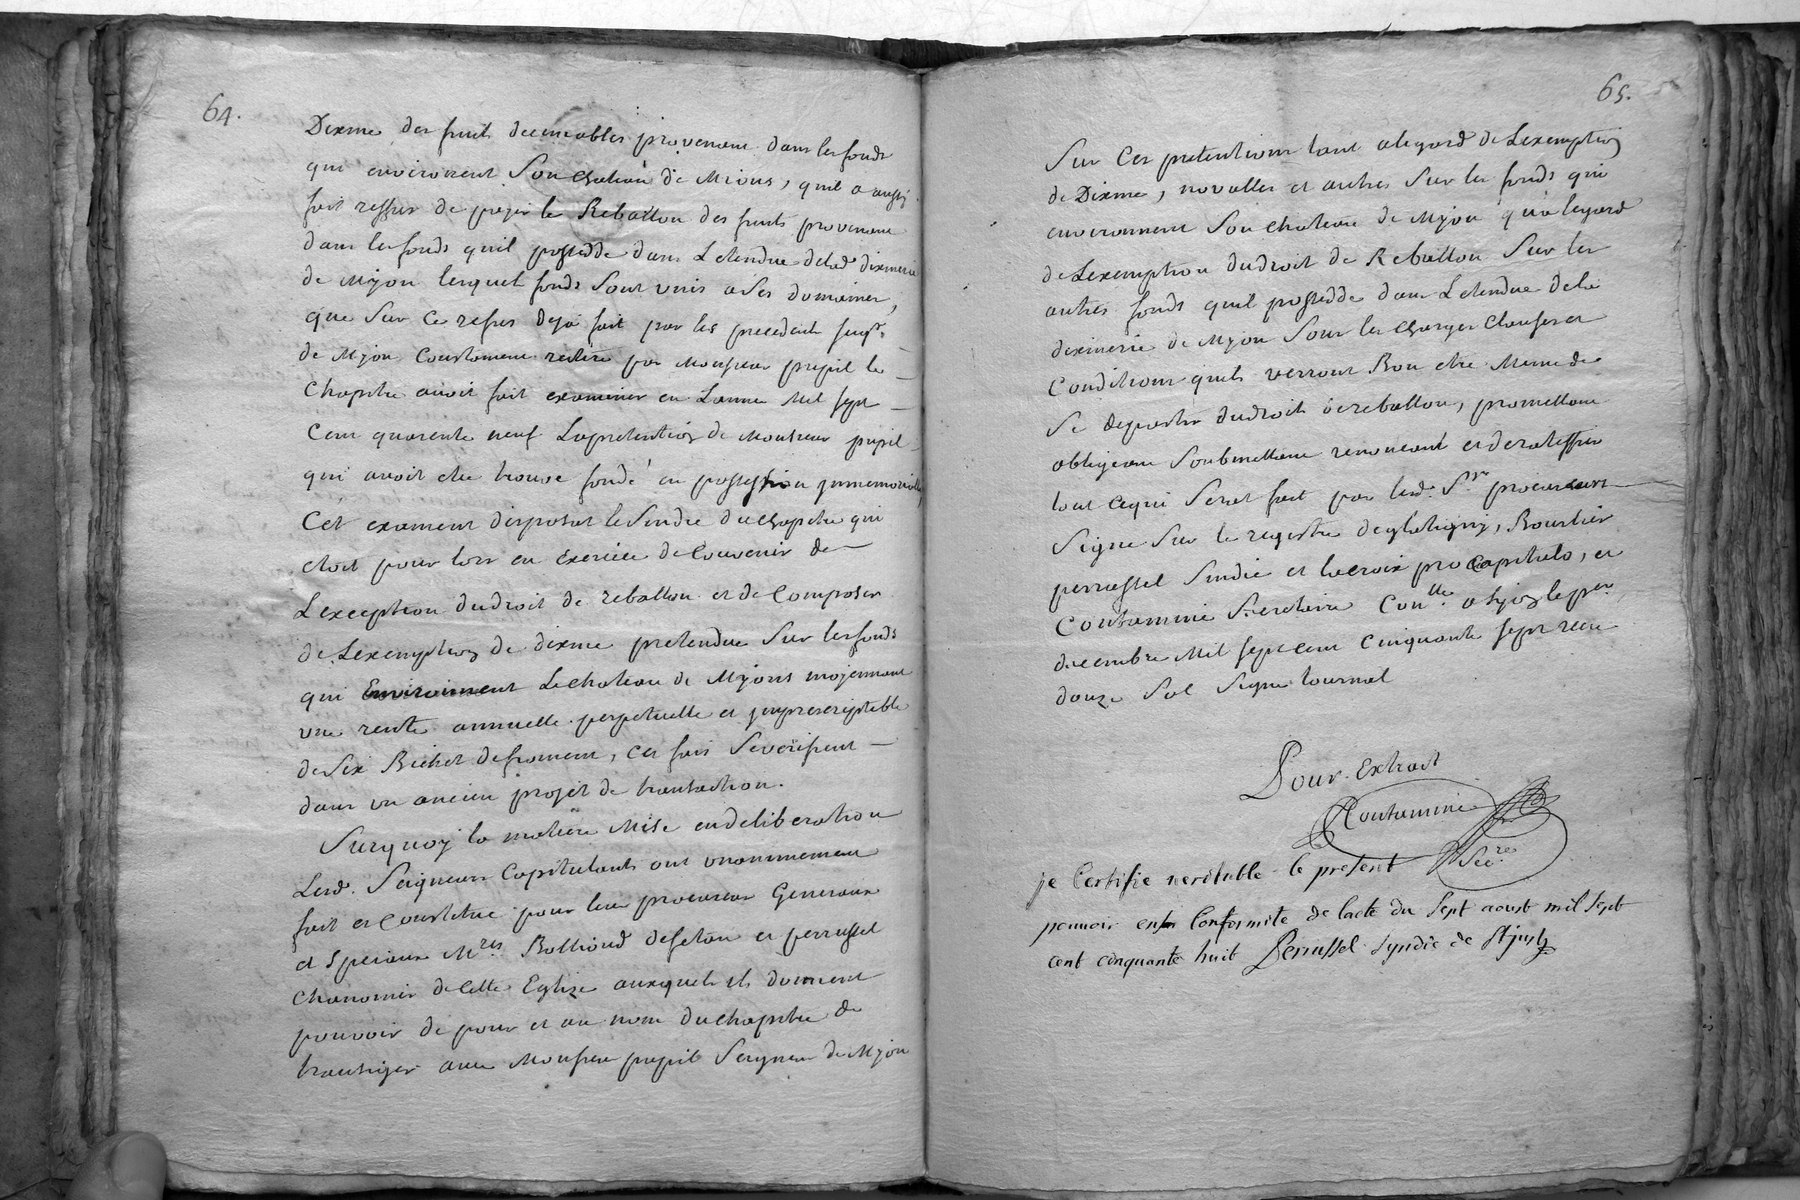 64.
Dixme des fruit decimables provenant dans les fonds
qui environent Son Chateau de Mions, quil a aussj
fait reffus de payer le Rebattou des fruits provenant
dans les fonds quil possedde dans L'etendue delad. dixmerie
de Mijon lesquel fonds Sont unis a Ses domaines,
que Sur Ce refus deja fait par les precedents seigrs.
de Mijon Constament reitéré par Monsieur pupil le
Chapitre avoit fait examiner en Lannee Mil sept
Cent quarente neuf Lapretention de Monsieur pupil
qui avoit ete trouvé fondé en possession jmmemorialle
Cet exament disposat le Sindic du Chapitre qui
etoit pour lors en Exercice de Convenir de
L'exception dudroit de rebattou et de Composer
de Lexemption de dixme pretendue Sur les fonds
qui Environnent Le chateau de Mijons mojennant
une rente annuelle perpetuelle et jmprescriptible
de Six Bichet de froment, Ces fais Severifient
dans un ancien projet de transaction.
Surquoj la matiere Mise en deliberation
Lesd. Seigneurs Capitulants ont unanimement
fait et Constitué pour leur procureur Generaux
et Speciaux Mrs. Bottioud de Seton et perrussel
Chanoines de Cette Eglise auxquels ils donnent
pouvoir de pour et au nom du Chapitre de
transiger avec Monsieur pupil Seigneur de Mijon
65.
Sur Ces pretentions tant alegard de Lexemption
de Dixme, novalles et autres Sur les fonds qui
environnent Son Chateau de Mijon qu'a legard
de Lexemption dudroit de Rebattou Sur les
autres fonds quil possedde dans Letendue de la
dixmerie de Mijon Sous les Charges Clauses et
Conditions quils verront Bon etre Meme de
Se departir dudroit de rebattou, promettant
obligeant Soubmettant renoncant et de ratiffier
tout cequi Serat fait par lesd. Srs procureurs
Signé Sur le registre Deglatigny, Bourlier
perrussel Sindic et lacroix pro Capitulo, et
Contamine Secretaire Conllé a Lyon le per
decembre Mil sept cent Cinquante sept recu
douze Sol Signé tournal
Pour Extrait
Contamine
Secre
je Certifie veritable le present
pouvoir en Conformité de lacte du Sept aoust mil Sept
cent cinquante huit Perrussel Syndic de St just